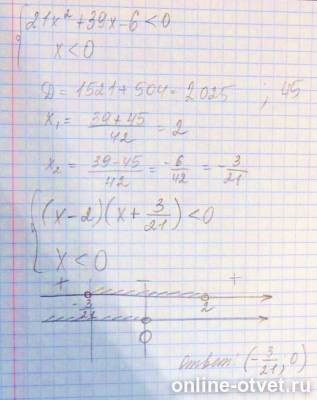 21x² + 39x - 6 < 0
x < 0
D = 1521 + 504 = 2025 ; 45
x₁ = (39 + 45)/42 = 2
x₂ = (39 - 45)/42 = -6/42 = -3/21
(x - 2)(x + 3/21) < 0
x < 0
+ - +
-3/21 2
0
ответ: (-3/21; 0)
online-otvet.ru